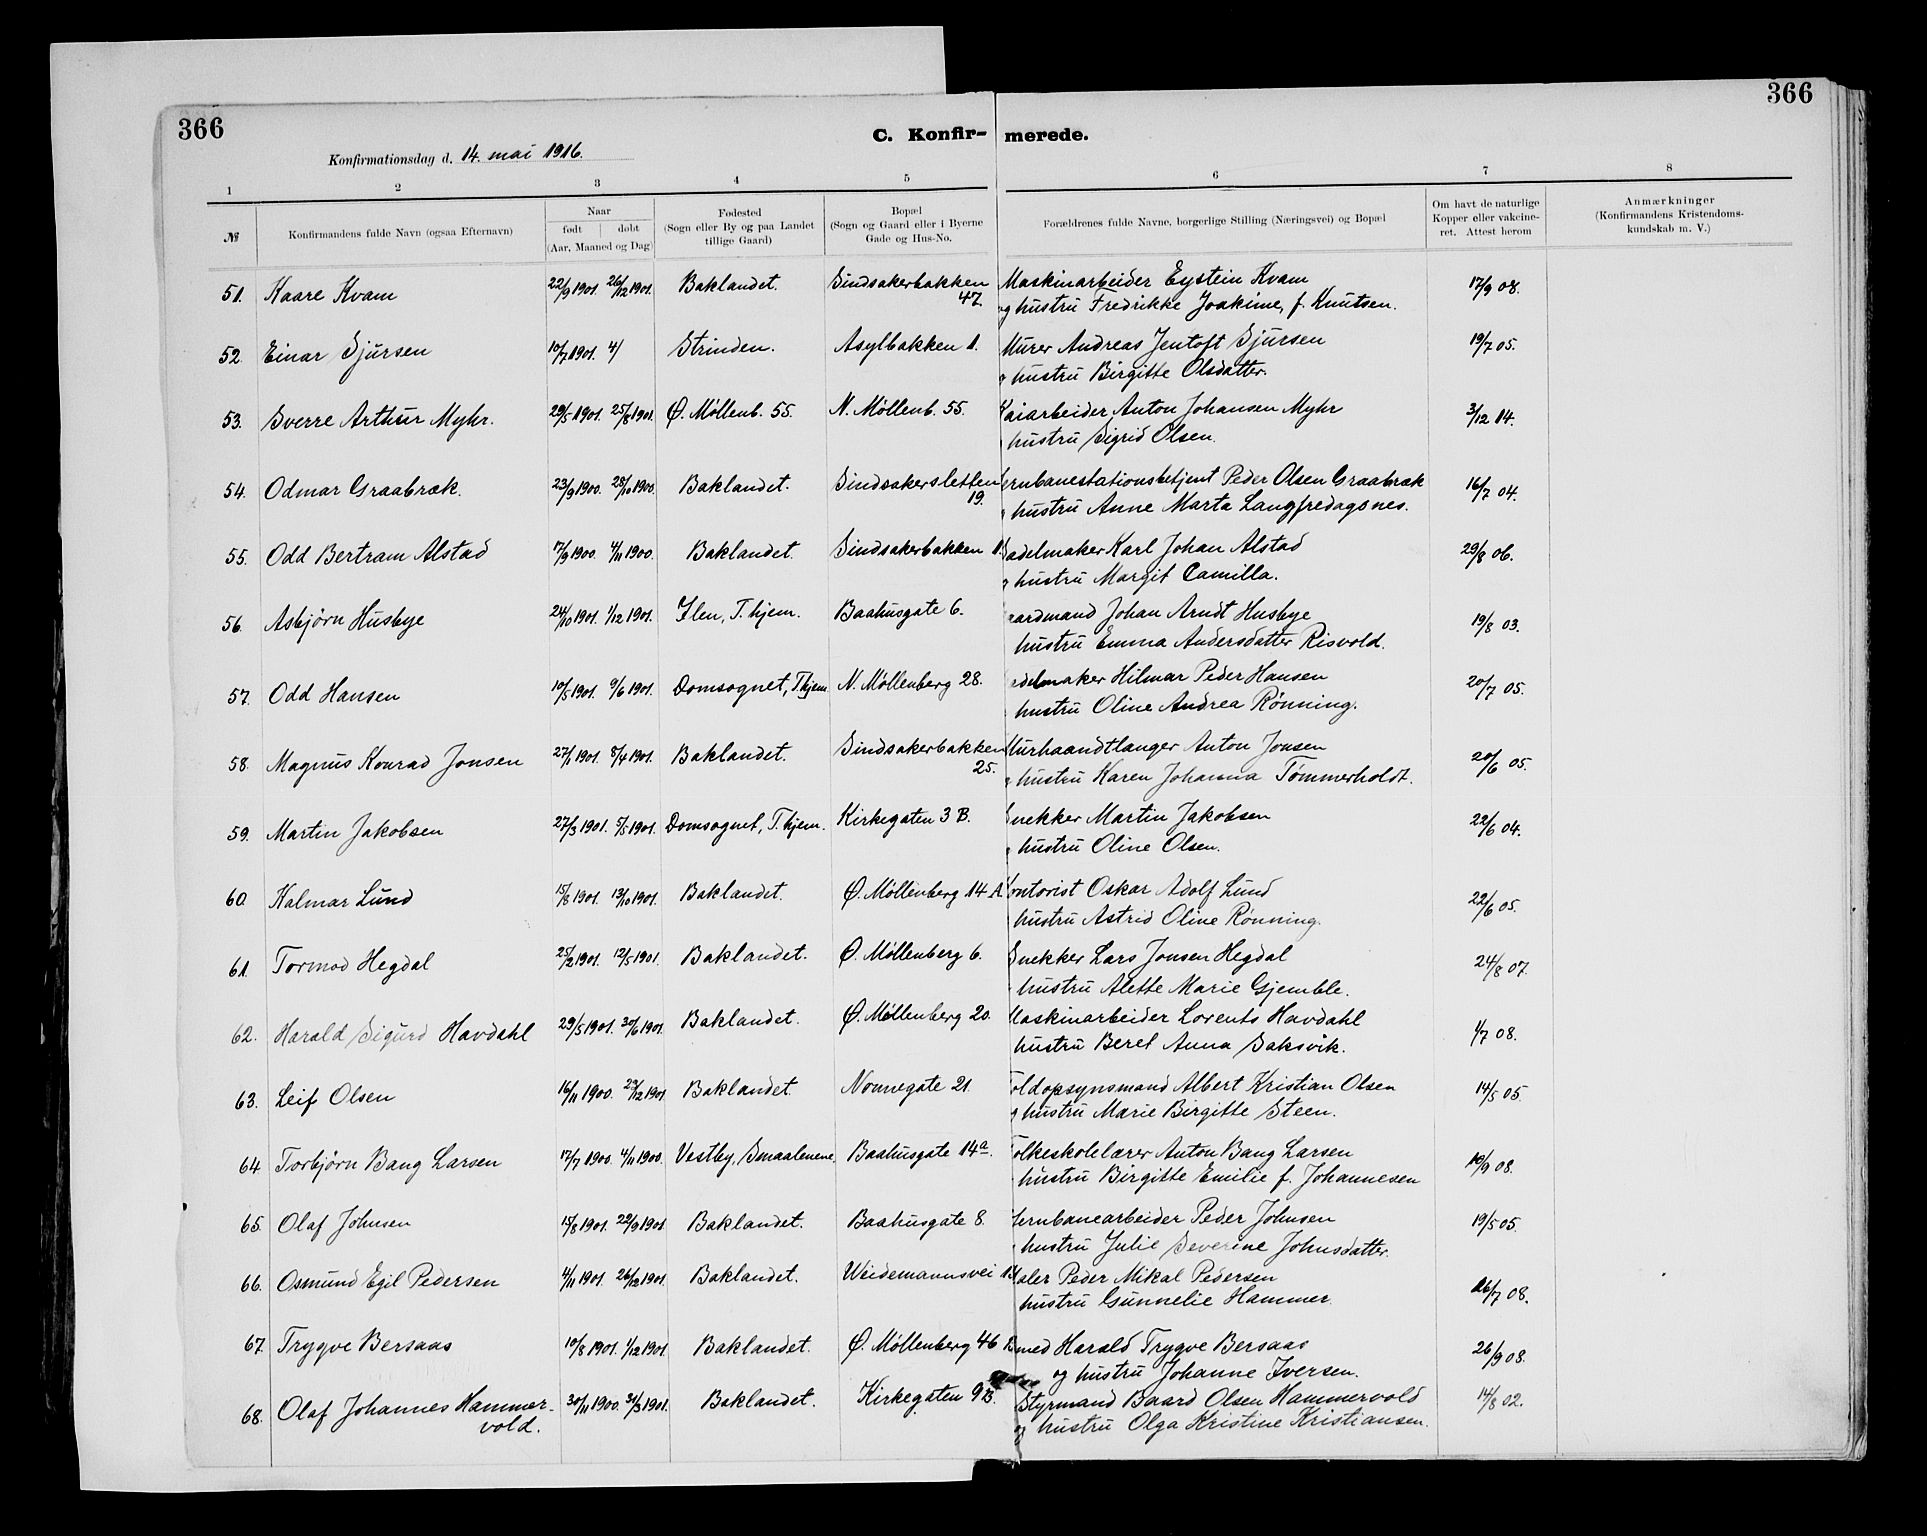 366
366
C. Konfir- merede.
Konfirmationsdag d. 14. mai 1916.
1 2 3 4 5 6 7 8
№ Konfirmandens fulde Navn (ogsaa Efternavn) Naar født døbt (Aar, Maaned og Dag) Fødested (Sogn eller By og paa Landet tillige Gaard) Bopæl (Sogn og Gaard eller i Byerne Gade og Hus-No. Forældrenes fulde Navne, borgerlige Stilling (Næringsvei) og Bopæl Om havt de naturlige Kopper eller vakcine- ret. Attest herom Anmærkninger (Konfirmandens Kristendoms- kundskab m. V.)
51. Kaare Kvam 22/9 1901. 26/12 1901. Baklandet. Sindsakerbakken 47. Maskinarbeider Eystein Kvam 17/9 08.
og hustru Fredrikke Joakime, f. Knutsen.
52. Einar Sjursen 10/7 1901. 4/ Strinden. Asylbakken 1. Murer Andreas Jentoft Sjursen 19/7 05.
hustru Birgitte Olsdatter.
53. Sverre Arthur Myhr. 29/5 1901. 25/8 1901. Ø. Møllenb. 55. N. Møllenb. 55. Kaiarbeider Anton Johansen Myhr 3/12 14.
hustru Sigrid Olsen.
54. Odmar Graabræk. 23/9 1900. 28/10 1900. Baklandet. Sindsakersletten 19. ernbanestationsbetjent Peder Olsen Graabræk 16/7 04.
hustru Anne Marta Langfredagsnes.
55. Odd Bertram Alstad 17/9 1900. 4/11 1900. Baklandet. Sindsakerbakken 1. Sadelmaker Karl Johan Alstad 29/8 06.
hustru Margit Camilla.
56. Asbjørn Husbye 24/10 1901. 1/12 1901. Ilen, T.hjem. Baahusgate 6. aardmand Johan Arndt Husbye 19/8 03.
hustru Emma Andersdatter Risvold.
57. Odd Hansen 10/5 1901. 9/6 1901. Domsognet, Thjem N. Møllenberg 28. adelmaker Hilmar Peder Hansen 20/7 05.
hustru Oline Andrea Rønning.
58. Magnus Konrad Jonsen 27/1 1901. 8/4 1901. Baklandet. Sindsakerbakken 25. Murhaandtlanger Anton Jonsen 20/6 05.
hustru Karen Johanna Tømmerholdt.
59. Martin Jakobsen 27/3 1901. 5/5 1901. Domsognet, T.hjem. Kirkegaten 3 B. Snekker Martin Jakobsen 22/6 04.
hustru Oline Olsen.
60. Kalmar Lund 15/8 1901. 13/10 1901. Baklandet. Ø. Møllenberg 14 A. Kontorist Oskar Adolf Lund 22/6 05.
hustru Astrid Oline Rønning.
61. Tormod Hegdal 25/2 1901. 12/5 1901. Baklandet. Ø. Møllenberg 6. Snekker Lars Jonsen Hegdal 24/8 07.
hustru Alette Marie Gjemble.
62. Harald Sigurd Havdahl 29/5 1901. 30/6 1901. Baklandet. Ø. Møllenberg 20. Maskinarbeider Lorents Havdahl 1/7 08.
hustru Beret Anna Saksvik.
63. Leif Olsen 16/11 1900. 29/12 1901 Baklandet. Nonnegate 21. Toldopsynsmand Albert Kristian Olsen 14/5 05.
hustru Marie Birgitte Steen.
64. Torbjørn Bang Larsen 17/7 1900. 4/11 1900. Vestby, Smaalenene. Baahusgate 14a. Folkeskolelærer Anton Bang Larsen 10/9 08.
hustru Birgitte Emilie f. Johannesen
65. Olaf Johnsen 15/8 1901. 22/9 1901. Baklandet. Baahusgate 8. Jernbanearbeider Peder Johnsen 19/5 05.
hustru Julie Severine Johnsdatter.
66. Osmund Egil Pedersen 4/11 1901. 26/12 1901. Baklandet. Weidemannsvei aler Peder Mikal Pedersen 26/7 08.
hustru Gunnelie Hammer.
67. Trygve Bersaas 10/8 1901. 1/12 1901. Baklandet. Ø. Møllenberg 46 B. med Harald Trygve Bersaas 26/9 08.
og hustru Johanne Iversen.
68. Olaf Johannes Hammer- vold. 30/11 1900. 31/3 1901. Baklandet. Kirkegaten 9 B. Styrmand Baard Olsen Hammervold 14/8 02.
og hustru Olga Kristine Kristiansen.